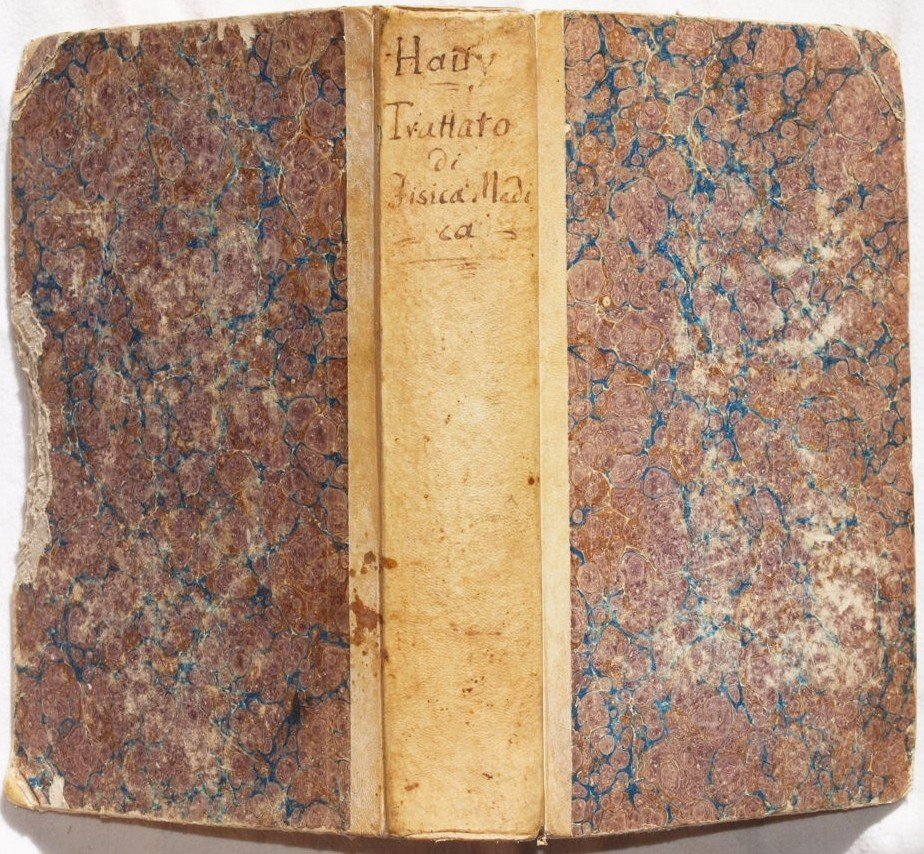 Haüy
Trattato
di
Fisica Medi
ca